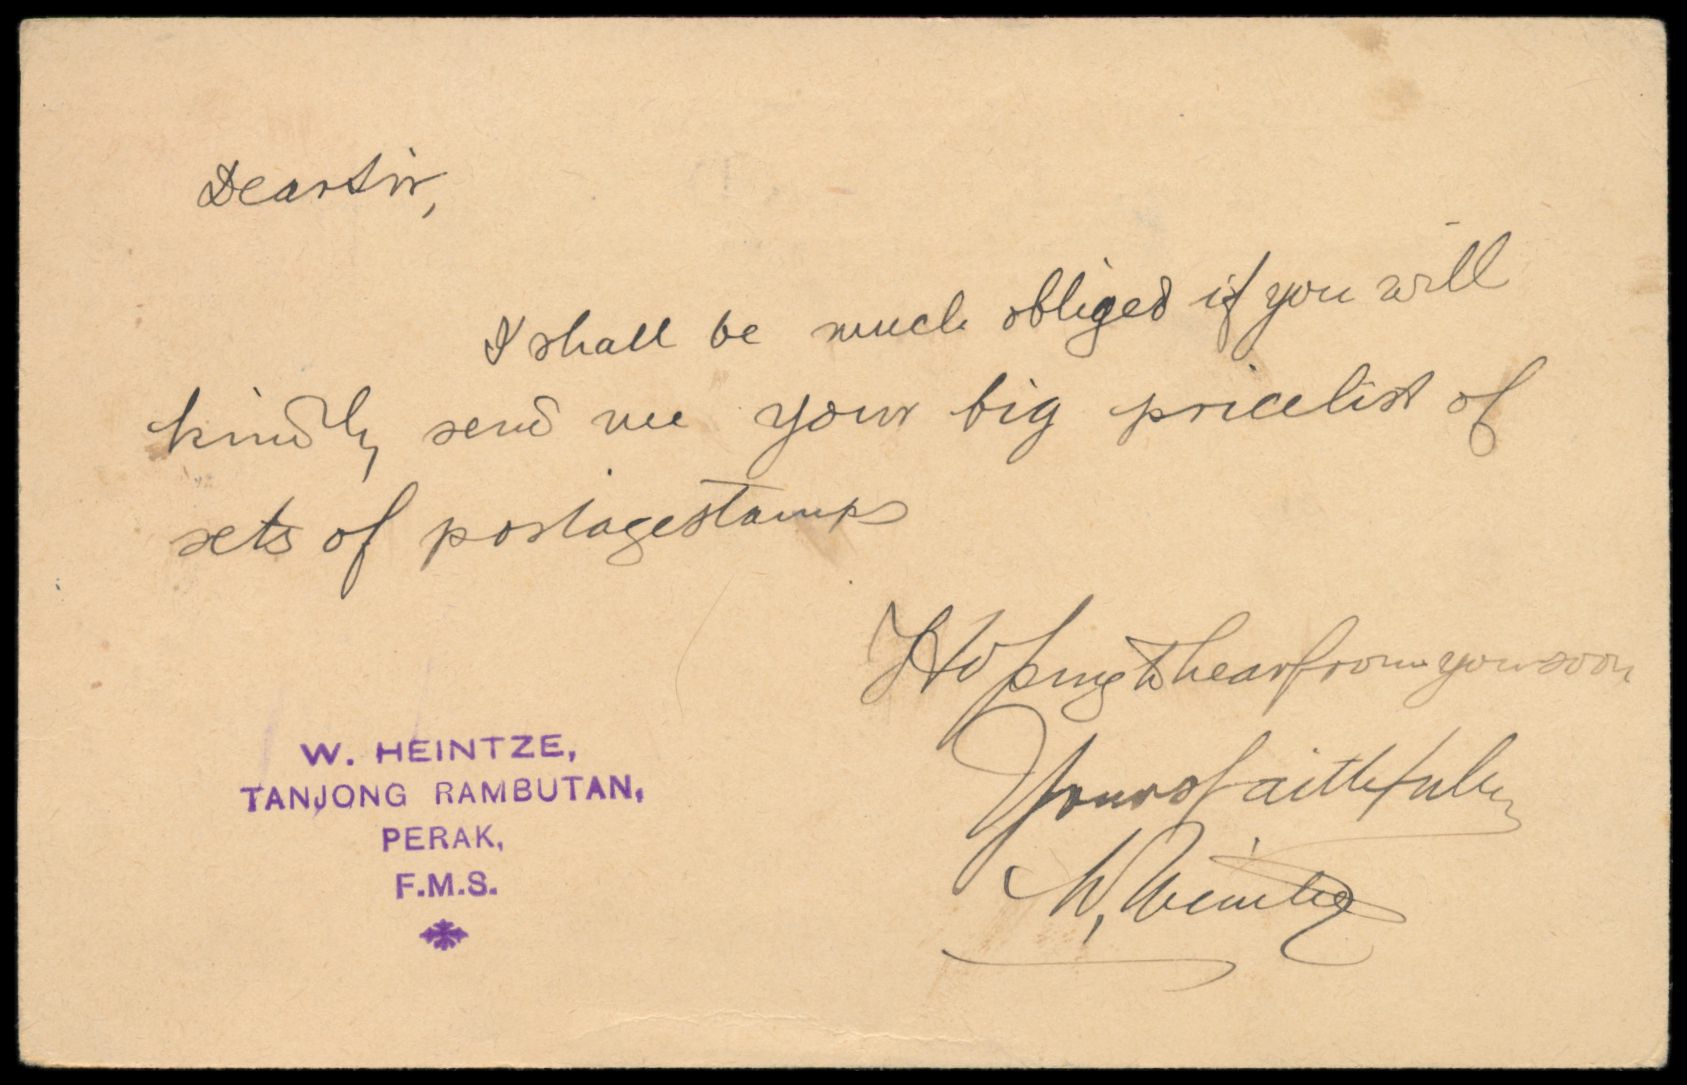 Dear Sir,
I shall be much obliged if you will
kindly send me your big pricelist of
sets of postagestamps
Hoping to hear from you soon
Yours faithfully
W. Heintze
W. HEINTZE,
TANJONG RAMBUTAN,
PERAK,
F.M.S.